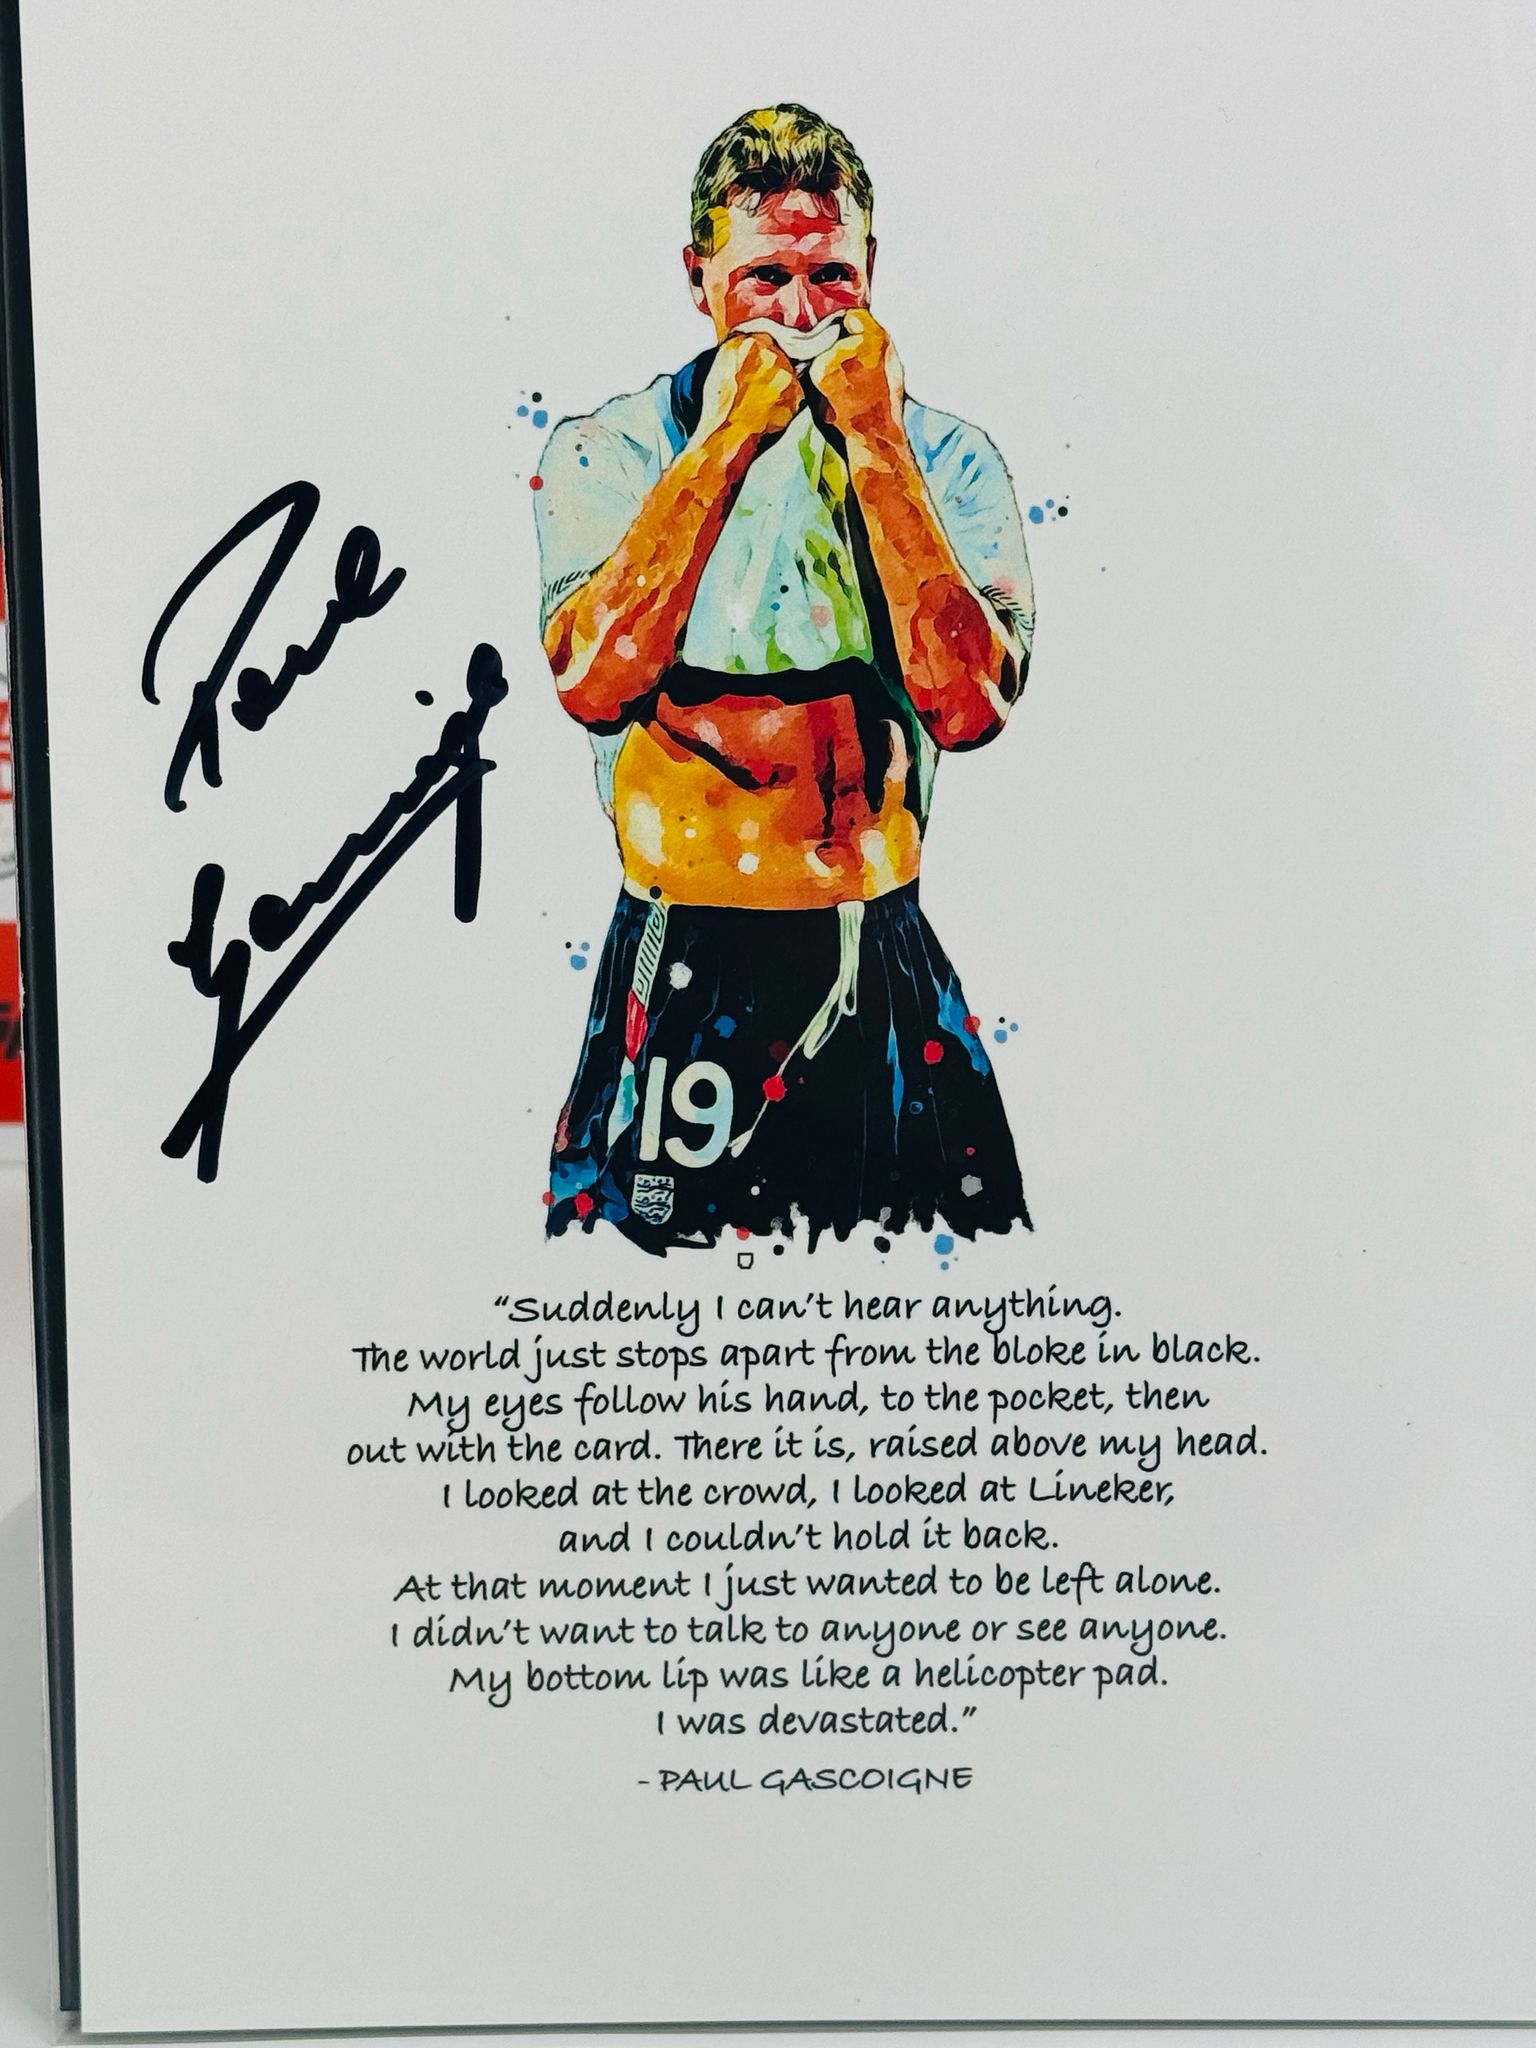 Paul
Gascoigne
19
“Suddenly I can’t hear anything.
The world just stops apart from the bloke in black.
My eyes follow his hand, to the pocket, then
out with the card. There it is, raised above my head.
I looked at the crowd, I looked at Lineker,
and I couldn’t hold it back.
At that moment I just wanted to be left alone.
I didn’t want to talk to anyone or see anyone.
My bottom lip was like a helicopter pad.
I was devastated.”
- PAUL GASCOIGNE